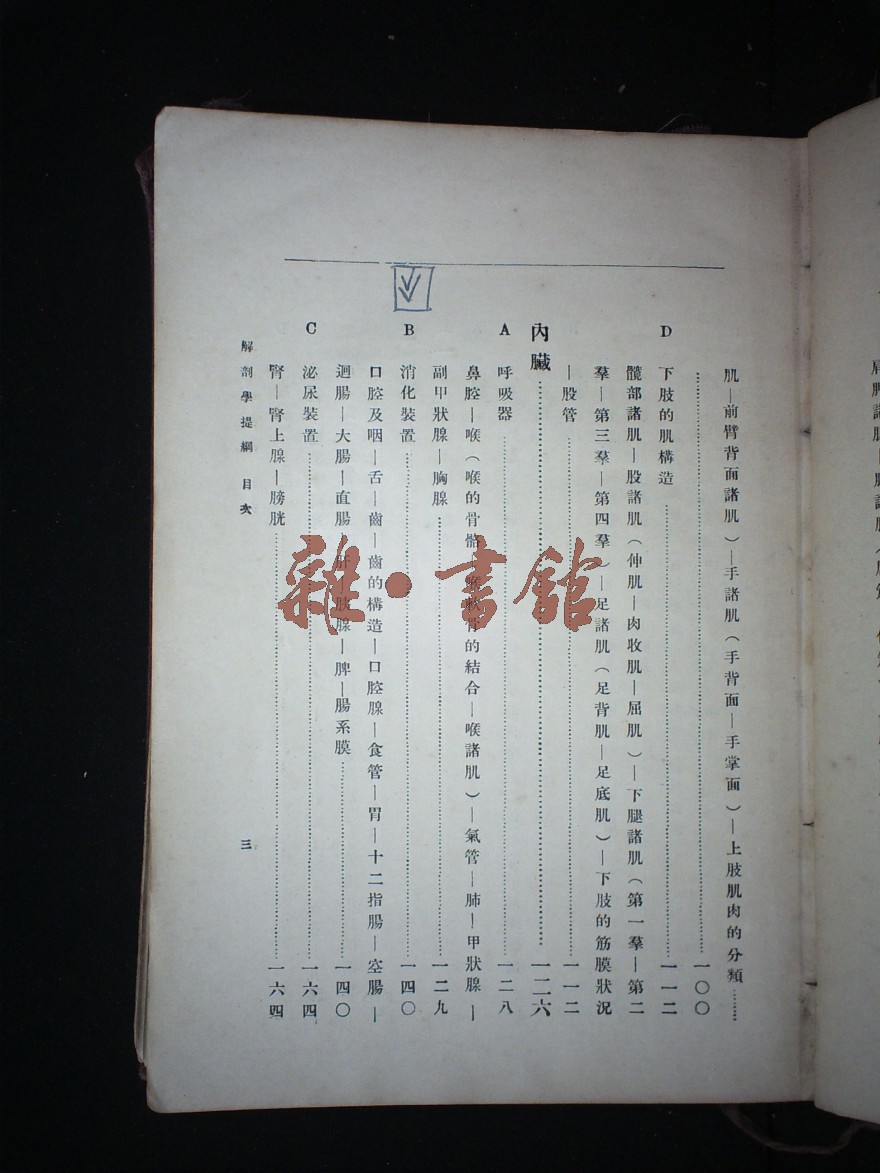 肌—前臂背面諸肌）—手諸肌（手背面—手掌面）—上肢肌肉的分類………
………一〇〇
D 下肢的肌構造………一一二
髖部諸肌—股諸肌（伸肌—內收肌—屈肌）—下腿諸肌（第一羣—第二
羣—第三羣—第四羣）—足諸肌（足背肌—足底肌）—下肢的筋膜狀況
—股管………一一二
內臟………一二六
A 呼吸器………一二八
鼻腔—喉（喉的骨骼—喉軟骨的結合—喉諸肌）—氣管—肺—甲狀腺—
副甲狀腺—胸腺………一二九
B 消化裝置………一四〇
口腔及咽—舌—齒—齒的構造—口腔腺—食管—胃—十二指腸—空腸—
迴腸—大腸—直腸—肝—胰腺—脾—腸系膜………一四〇
C 泌尿裝置………一六四
腎—腎上腺—膀胱………一六四
解剖學提綱 目次
三
雜·書館